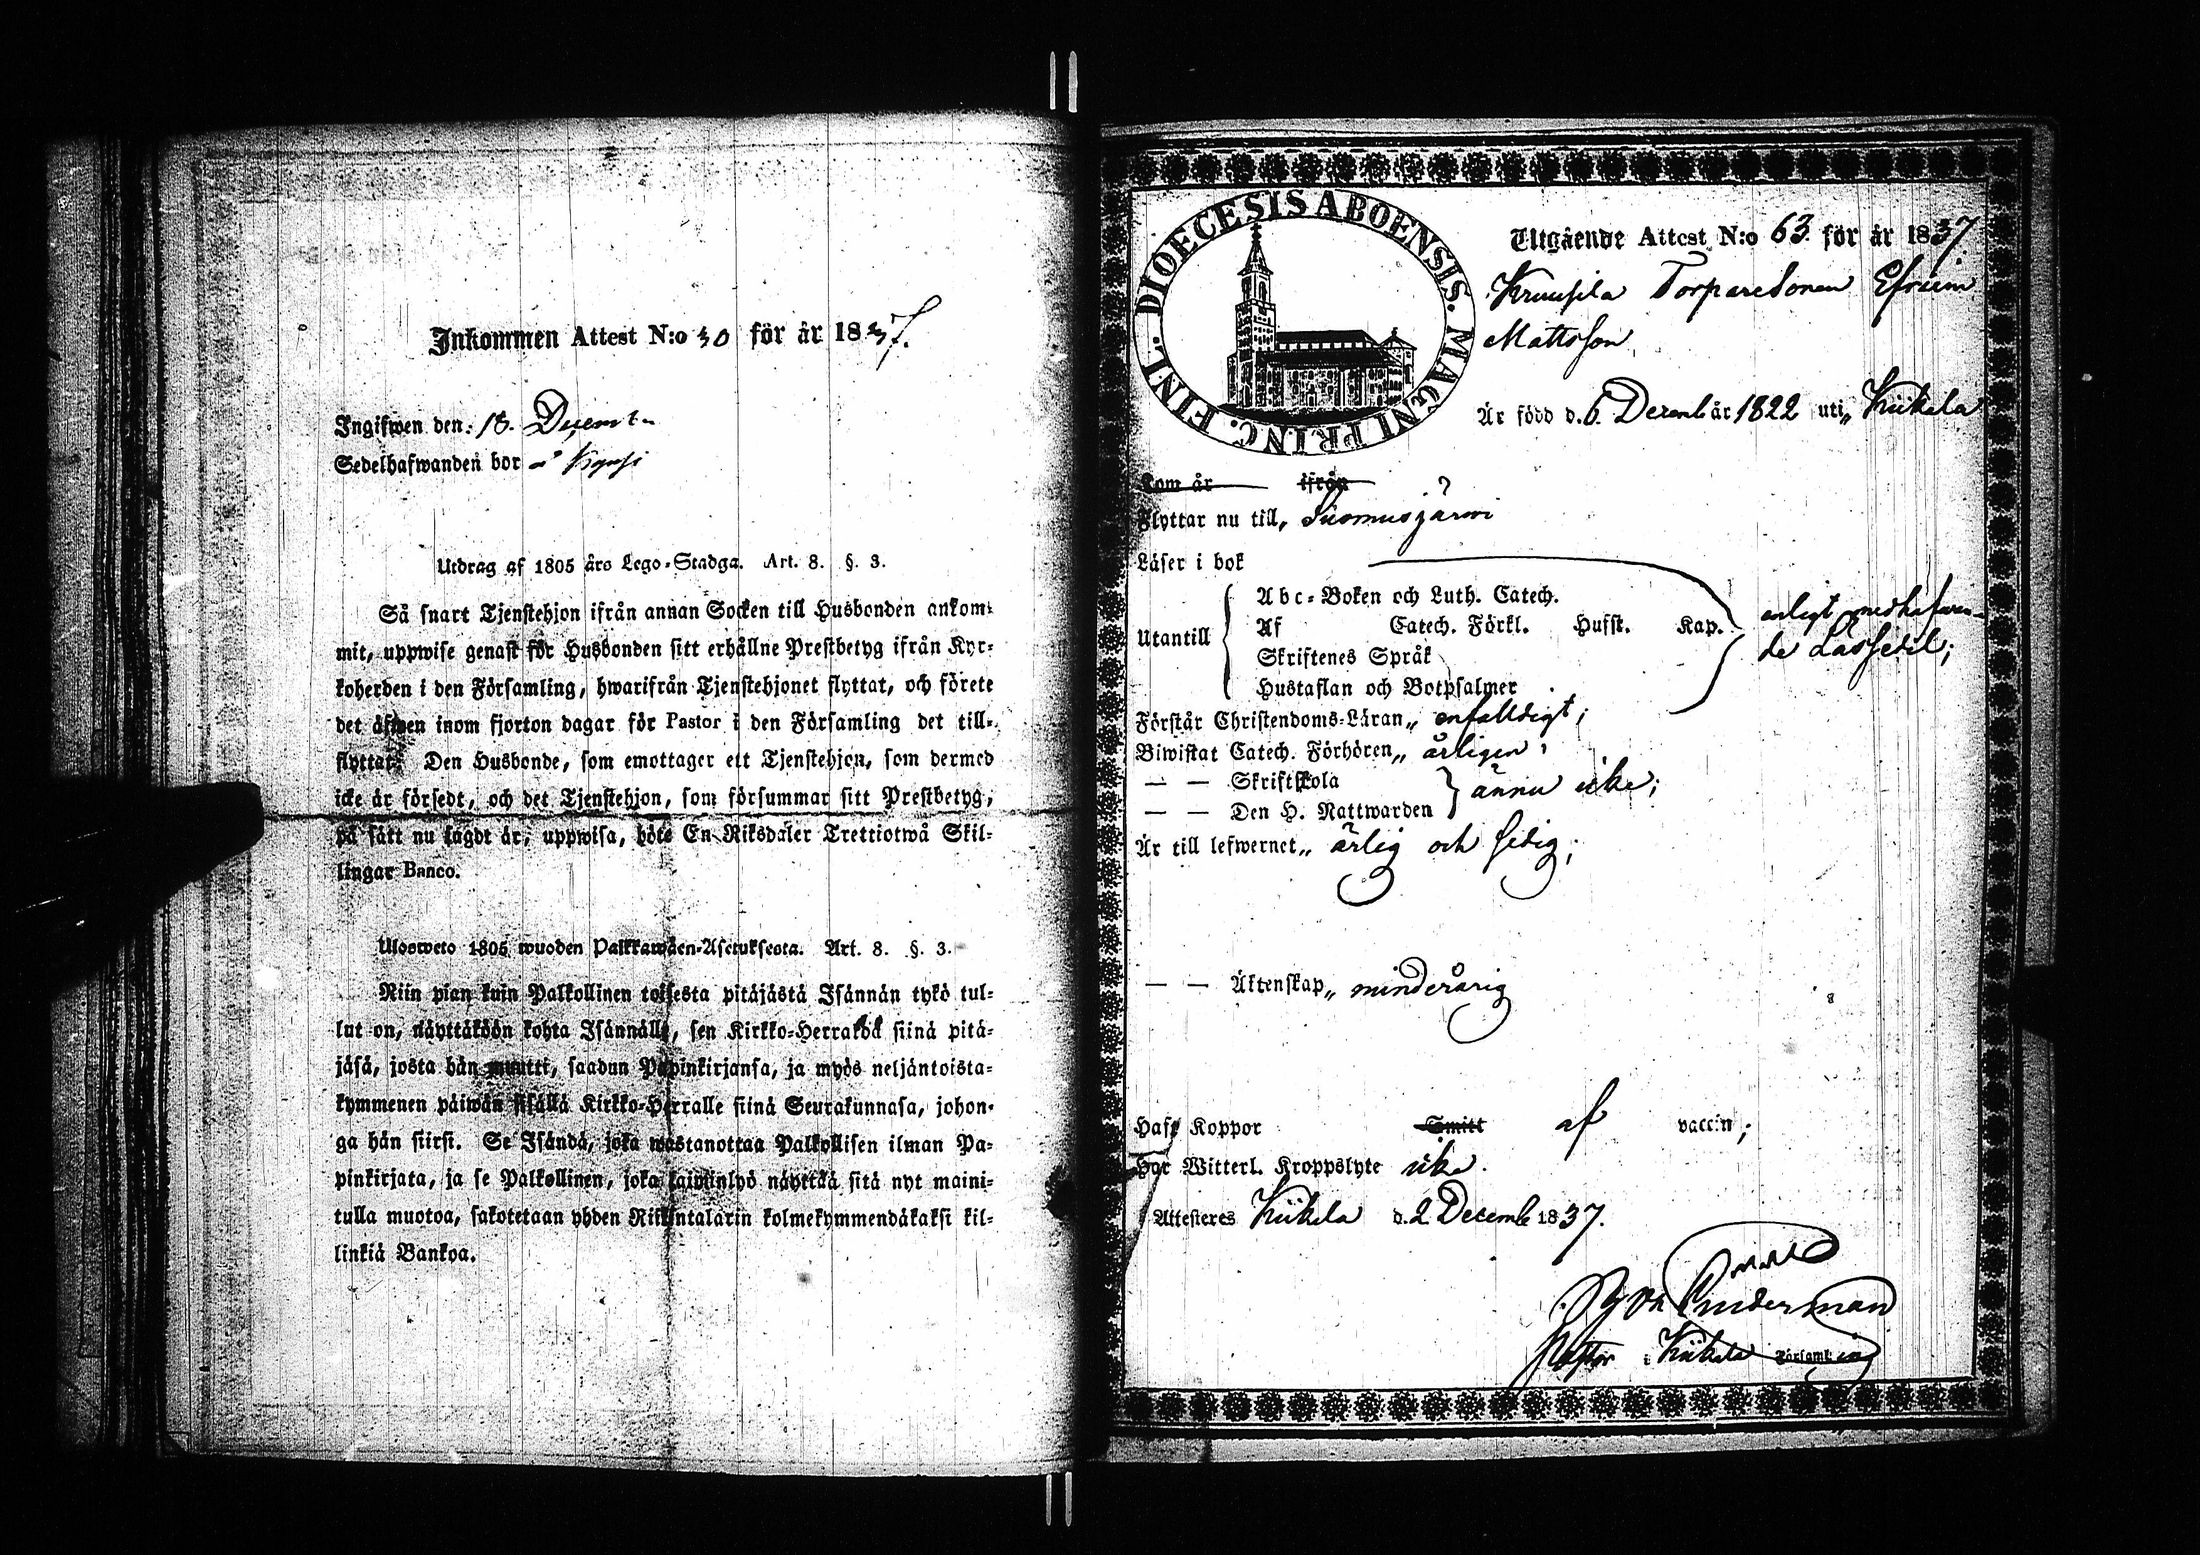 Inkommen Attest N:o 30 för år 1837.
Ingifwen den 18. Decemb
Sedelhafwanden bor å
Utdrag af 1805 års Lego-Stadga. Art. 8. §. 3.
Så snart Tjenstehjon ifrån annan Socken till Husbonden ankom-
mit, uppwise genast för Husbonden sitt erhållne Prestbetyg ifrån Kyr-
koherden i den Församling, hwarifrån Tjenstehjonet flyttat, och förete
det äfwen inom fjorton dagar för Pastor i den Församling det till-
flyttat. Den Husbonde, som emottager ett Tjenstehjon, som dermed
icke är försedt, och det Tjenstehjon, som försummar sitt Prestbetyg,
på sätt nu sagdt är, uppwisa, böte En Riksdaler Trettiotwå Skil-
lingar Banco.
Ulosweto 1805 wuoden Palkkawäen-Asetuksesta. Art. 8. §. 3.
Niin pian kuin Palkollinen toisesta pitäjästä Isännän tykö tul-
lut on, näyttäköön kohta Isännälle, sen Kirkko-Herralda siinä pitä-
jäsä, josta hän muutti, saadun Papinkirjansa, ja myös neljäntoista-
kymmenen päiwän sisällä Kirkko-Herralle siinä Seurakunnasa, johon-
ga hän siirsi. Se Isändä, joka wastanottaa Palkollisen ilman Pa-
pinkirjata, ja se Palkollinen, joka laiminlyö näyttää sitä nyt maini-
tulla muotoa, sakotetaan yhden Rikintalarin kolmekymmendäkaksi kil-
linkiä Bankoa.
DIOECESIS ABOENSIS. MAGNI PRINC. FINL.
Utgående Attest N:o 63. för år 1837.
Torparesonen Efraim
Mattsson
Är född d. 6. Decemb år 1822 uti Kiikala
Kom år ifrån
Flyttar nu till Suomusjärwi
Läser i bok
Utantill
Abc-Boken och Luth. Catech.
Af Catech. Förkl. Husst. Kap.
Skriftenes Språk
Hustaflan och Botpsalmer
enligt medhafwan-
de Läsesedel;
Förstår Christendoms-Läran enfalldigt;
Biwistat Catech. Förhören årligen;
— — Skriftskola
— — Den H. Nattwarden
ännu icke;
Är till lefwernet ärlig och sedig;
— — Äktenskap minderårig
Haft Koppor Smitt af vaccin;
Har Witterl. Kroppslyte icke.
Attesteres Kiikala d. 2 Decemb 1837.
Pastor i Kiikala Församling